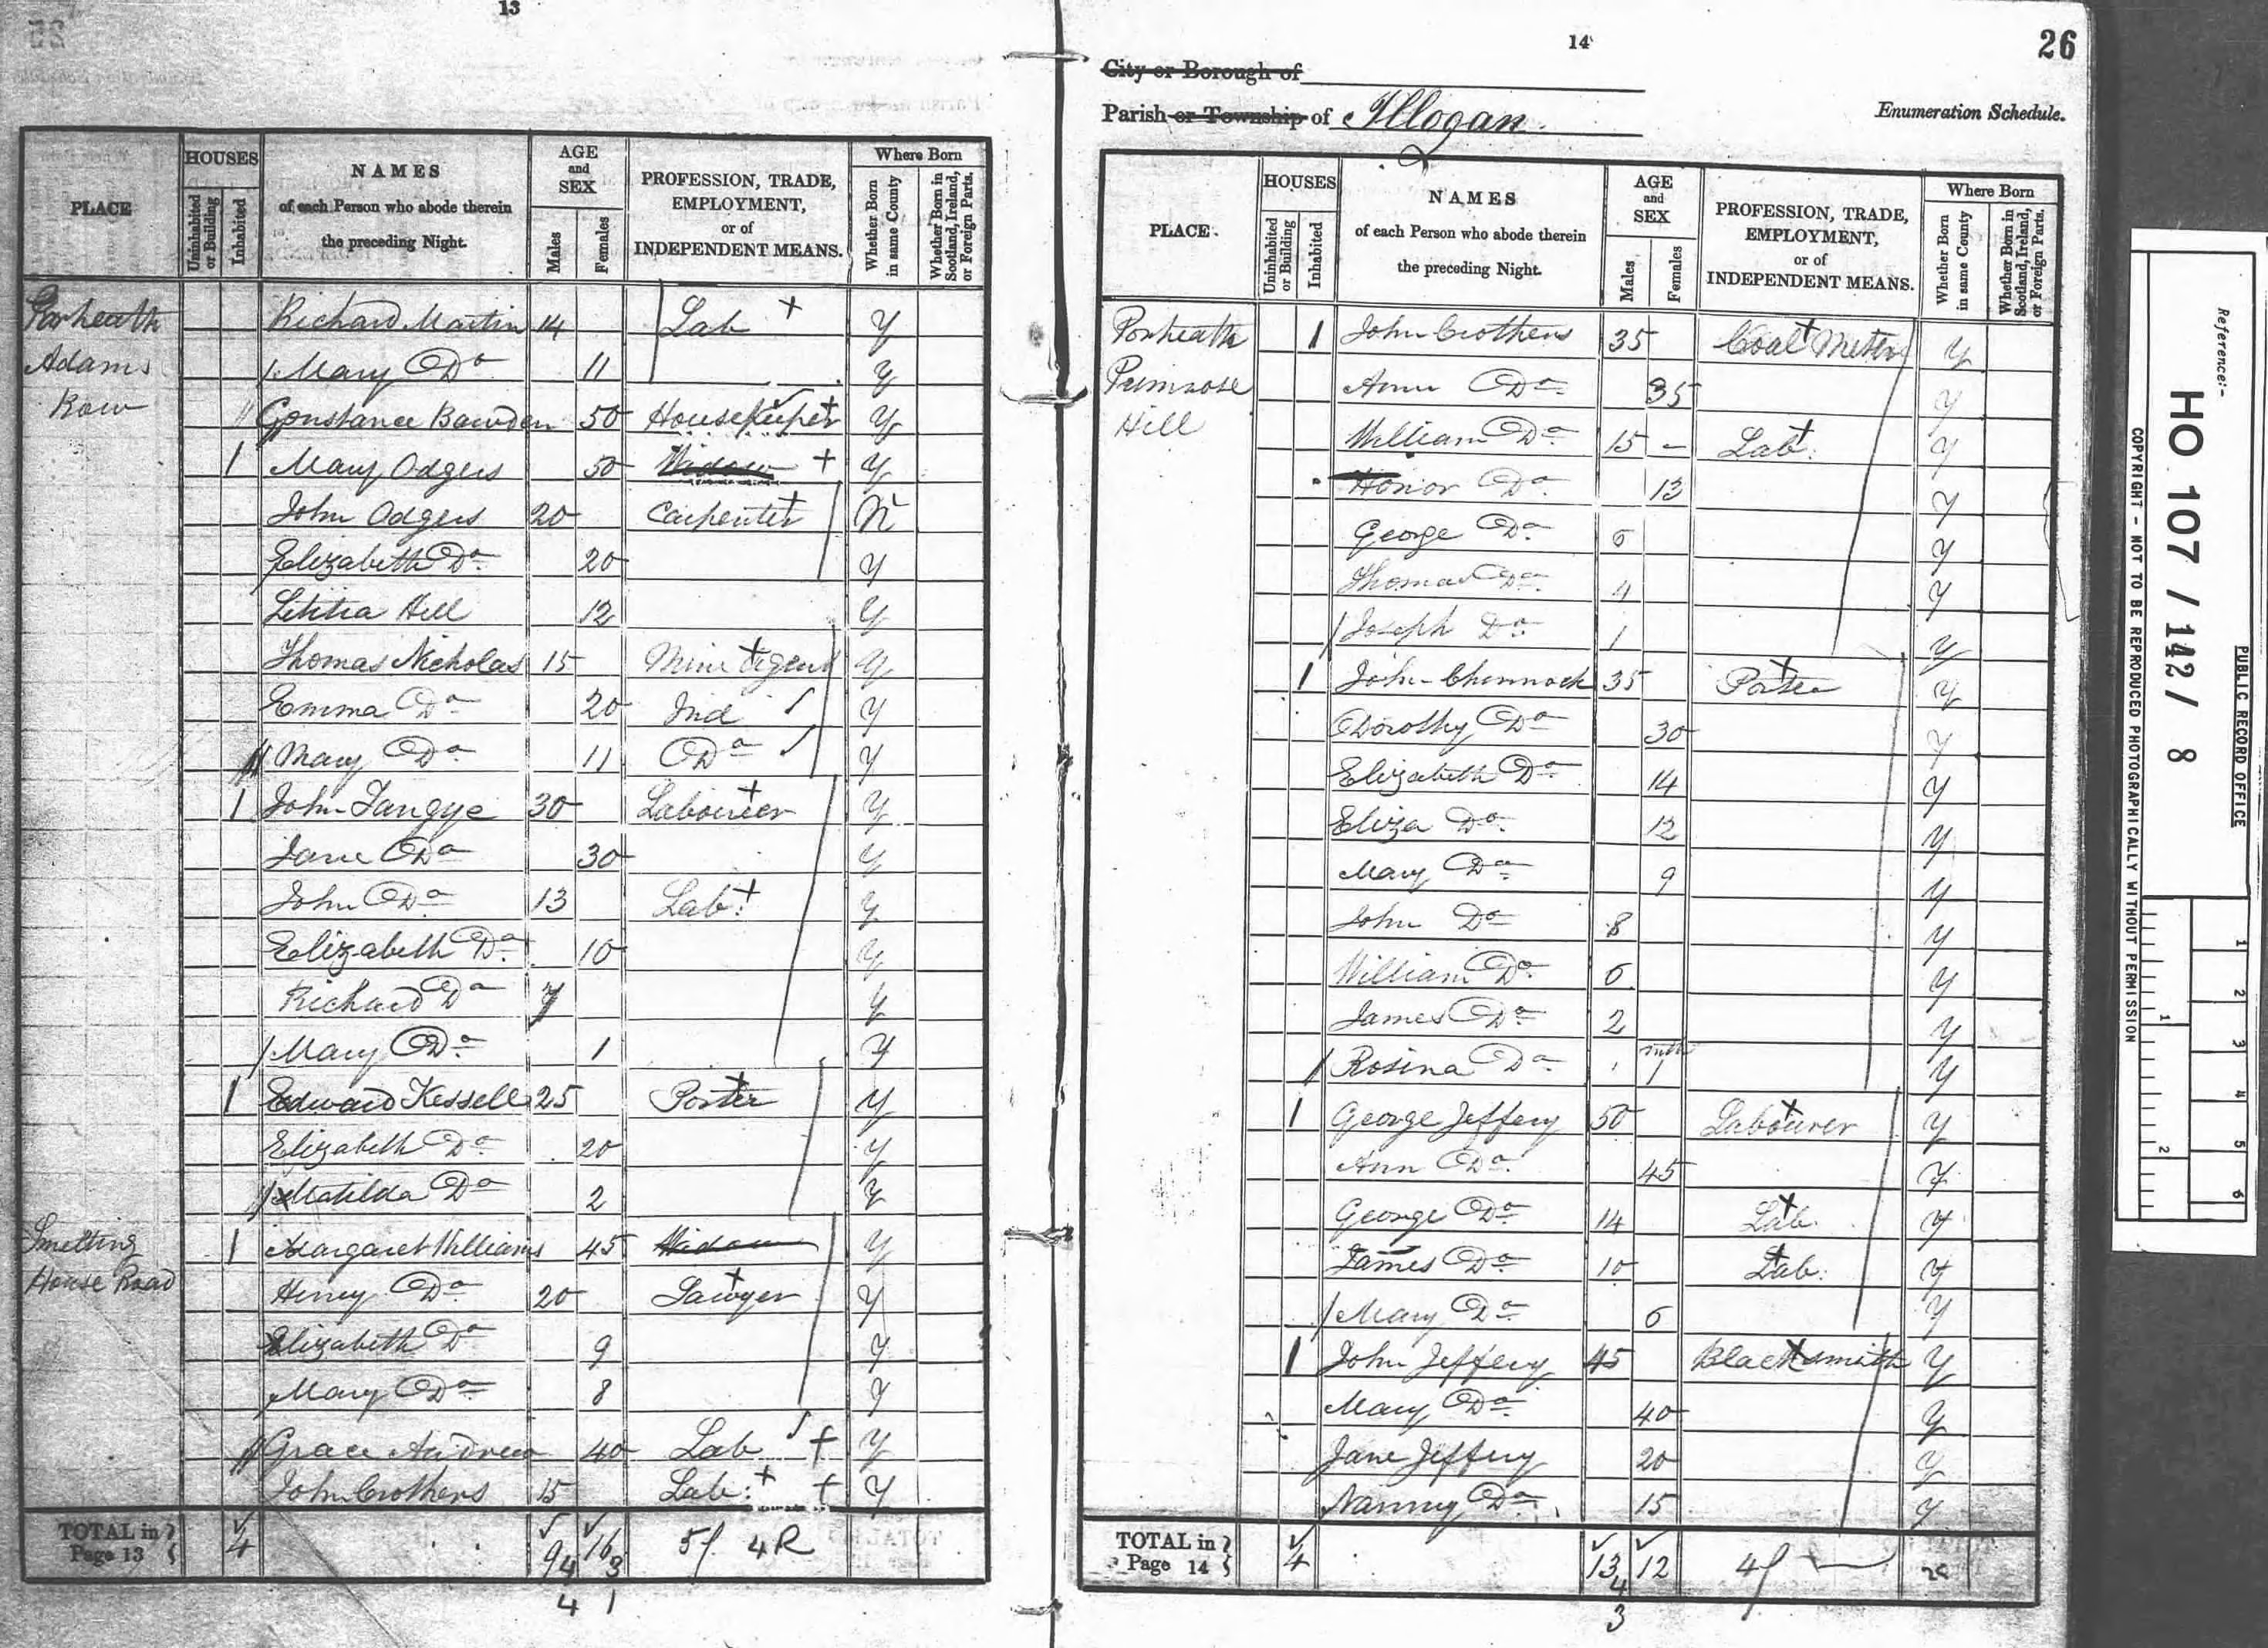 13
PLACE
HOUSES
Uninhabited or Building
Inhabited
NAMES of each Person who abode therein the preceding Night.
AGE and SEX
Males
Females
PROFESSION, TRADE, EMPLOYMENT, or of INDEPENDENT MEANS.
Where Born
Whether Born in same County
Whether Born in Scotland, Ireland, or Foreign Parts.
Porheath Richard Martin 14 Lab Y
Adams Mary Do 11 Y
Row Constance Bawden 50 Housekeeper Y
1 Mary Odgers 50 Widow Y
John Odgers 20 Carpenter N
Elizabeth Do 20 Y
Letitia Hill 12 Y
Thomas Nicholas 15 Mine Agent Y
Emma Do 20 Ind Y
Mary Do 11 Do Y
1 John Tangye 30 Labourer Y
Jane Do 30 Y
John Do 13 Lab: Y
Elizabeth Do 10 Y
Richard Do 7 Y
Mary Do 1 Y
1 Edward Kessell 25 Porter Y
Elizabeth Do 20 Y
Matilda Do 2 Y
Smelting 1 Margaret Williams 45 Widow Y
House Road Henry Do 20 Sawyer Y
Elizabeth Do 9 Y
Mary Do 8 Y
Grace Andrew 40 Lab Y
John Crothers 15 Lab: Y
TOTAL in Page 13 4 9 16 4 R
4 1
14
26
City or Borough of
Parish or Township of Illogan
Enumeration Schedule.
PLACE.
HOUSES
Uninhabited or Building
Inhabited
NAMES of each Person who abode therein the preceding Night.
AGE and SEX
Males
Females
PROFESSION, TRADE, EMPLOYMENT, or of INDEPENDENT MEANS.
Where Born
Whether Born in same County
Whether Born in Scotland, Ireland, or Foreign Parts.
Porheath 1 John Crothers 35 Coal Meter Y
Primrose Ann Do 35 Y
Hill William Do 15 Lab: Y
Honor Do 13 Y
George Do 6 Y
Thomas Do 4 Y
Joseph Do 1 Y
1 John Chinnock 35 Porter Y
Dorothy Do 30 Y
Elizabeth Do 14 Y
Eliza Do 12 Y
Mary Do 9 Y
John Do 8 Y
William Do 6 Y
James Do 2 Y
Rosina Do mth 1 Y
1 George Jeffery 50 Labourer Y
Ann Do 45 Y
George Do 14 Lab. Y
James Do 10 Lab: Y
Mary Do 6 Y
1 John Jeffery 45 Blacksmith Y
Mary Do 40 Y
Jane Jeffery 20 Y
Nanny Do 15 Y
TOTAL in Page 14 4 13 12
4
3
Reference:-
HO 107 / 142 / 8
PUBLIC RECORD OFFICE
COPYRIGHT - NOT TO BE REPRODUCED PHOTOGRAPHICALLY WITHOUT PERMISSION
1 2 3 4 5 6
1 2